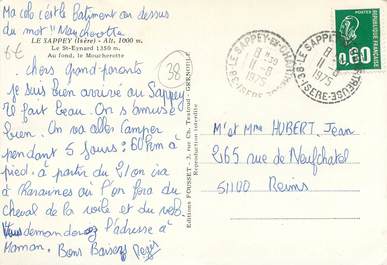 Ma colo c'est le Batiment au dessus
du mot "Moucherotte"
6€
LE SAPPEY (Isère) - Alt. 1000 m.
Le St-Eynard 1350 m.
Au fond, le Moucherotte
38
chers Grand-parents
je suis bien arrivé au Sappey
il fait beau. On s'amuse
bien. On va aller camper
pendant 5 Jours: 60 Km à
pied. à partir du 21 on ira
à où l'on fera du
Cheval de la voile et du vélo.
Vous demanderez l'adresse à
Maman. Bons Baisers Régis
Editions FOUSSET - 3, rue Ch. Testoud - GRENOBLE
Reproduction interdite
LE SAPPEY-EN-CHARTREUSE
11-8
1975
38-ISERE
LE SAPPEY-EN-CHARTREUSE
11-8
1975
38-ISERE
POSTES
0,60
Mr et Mme HUBERT Jean
265 rue de Neufchatel
51100 Reims